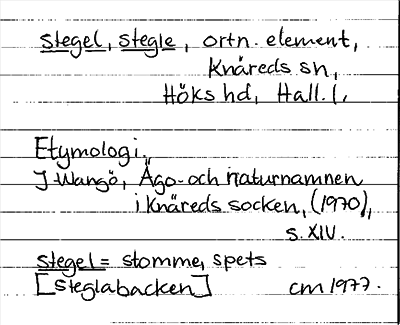 stegel, stegle, ortn. element,
Knäreds sn,
Höks hd, Hall. l,
Etymologi.
J Wangö, Ägo- och naturnamnen
i Knäreds socken, (1970),
s. XIV.
stegel = stomme, spets
[Steglabacken] cm 1977.